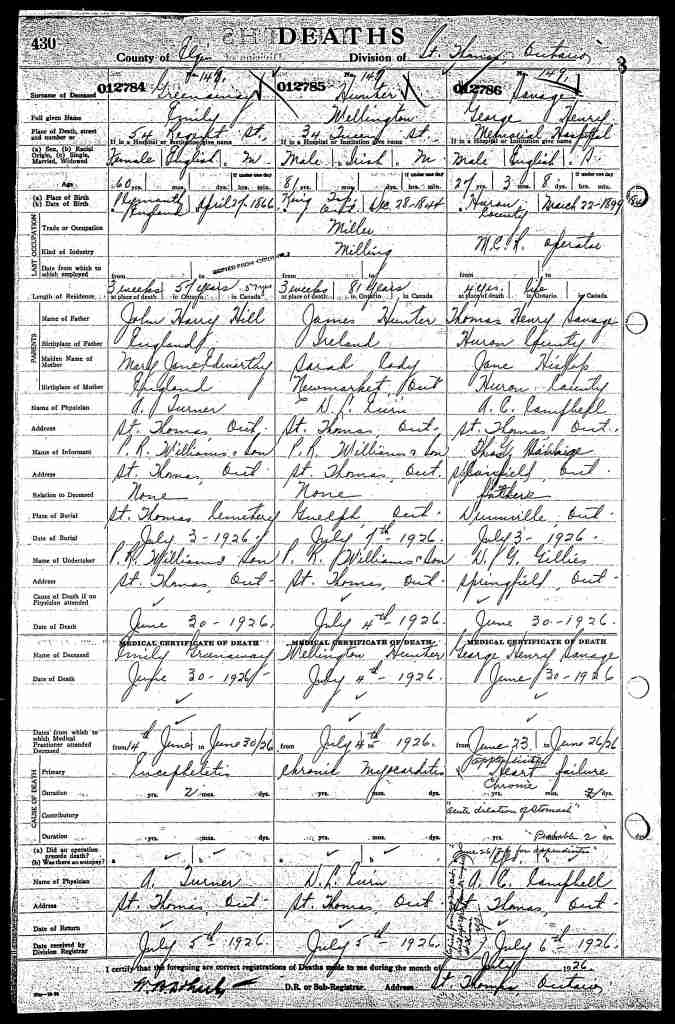 430
DEATHS
County of Elgin Division of St. Thomas, Ontario
3
No. 149. No. 149 No. 149
012784 012785 012786
Surname of Deceased Greenaway Hunter Savage
Full given Name Emily Wellington George Henry
Place of Death, street and number or 54 Regent St. 34 Queen St. Memorial Hospital
If in a Hospital or Institution give name If in a Hospital or Institution give name If in a Hospital or Institution give name
(a) Sex, (b) Racial Origin, (c) Single, Married, Widowed Female English M Male Irish M Male English S.
Age 60 yrs. mos. dys. hrs. min. 81 yrs. mos. dys. hrs. min. 27 yrs. 3 mos. 8 dys. hrs. min.
(a) Place of Birth
(b) Date of Birth Plymouth England April 27 1866 King Ont. Dec. 28-1844 Huron County March 22-1899
LAST OCCUPATION
Trade or Occupation Miller
Kind of Industry Milling M.C.R. operator
Date from which to which employed from to from to from to
Length of Residence 3 weeks 57 years 57 yrs 3 weeks 81 years 4 yrs. life
at place of death in Ontario in Canada at place of death in Ontario in Canada at place of death in Ontario in Canada
PARENTS
Name of Father John Harry Hill James Hunter Thomas Henry Savage
Birthplace of Father England Ireland Huron County
Maiden Name of Mother Mary Jane Edworthy Sarah Cody Jane Hislop
Birthplace of Mother England Newmarket, Ont Huron County
Name of Physician A. Turner A. C. Campbell
Address St. Thomas, Ont. St. Thomas, Ont. St. Thomas, Ont.
Name of Informant P. R. Williams & Son P. R. Williams & Son
Address St. Thomas, Ont St. Thomas, Ont. Springfield, Ont.
Relation to Deceased None None Father
Place of Burial St. Thomas Cemetery Guelph, Ont. Dunnville, Ont.
Date of Burial July 3-1926. July 7th-1926. July 3-1926.
Name of Undertaker P. R. Williams & Son P. R. Williams & Son Gillies
Address St. Thomas, Ont. St. Thomas, Ont. Springfield, Ont.
Cause of Death if no Physician attended
Date of Death June 30-1926. July 4th-1926. June 30-1926.
MEDICAL CERTIFICATE OF DEATH MEDICAL CERTIFICATE OF DEATH MEDICAL CERTIFICATE OF DEATH
Name of Deceased Emily Greenaway Wellington Hunter George Henry Savage
Date of Death June 30-1926 July 4th-1926. June 30-1926
Dates from which to which Medical Practitioner attended Deceased from 14th June to June 30/26 from July 4th 1926. from June 23 to June 26/26
CAUSE OF DEATH
appendicitis
Primary Encephaletis Chronic Myocarditis Heart failure
Chronic
Duration yrs. 2 mos. dys. yrs. mos. dys. yrs. mos. 7 dys.
Contributory "acute dilation of Stomach"
Duration yrs. mos. dys. yrs. mos. dys. yrs. "Probable 2" dys.
(a) Did an operation precede death?
(b) Was there an autopsy? a b a b June 26/26 for appendicitis
Name of Physician A. Turner A. C. Campbell
Address St. Thomas, Ont. St. Thomas, Ont St. Thomas, Ont.
Date of Return
Date received by Division Registrar July 5th-1926. July 5th-1926. July 6th-1926.
I certify that the foregoing are correct registrations of Deaths made to me during the month of July 1926
D.R. or Sub-Registrar. Address St. Thomas, Ontario